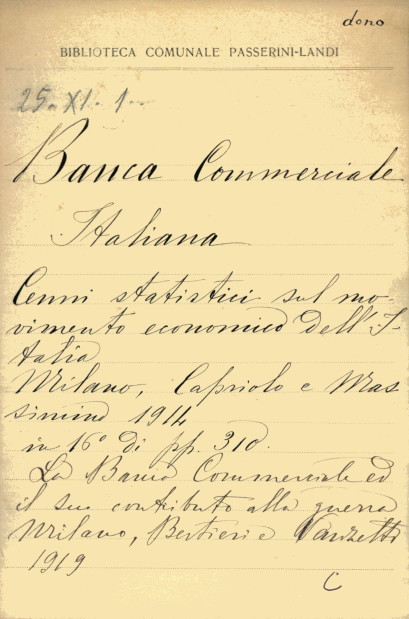 dono
BIBLIOTECA COMUNALE PASSERINI-LANDI
25. XI. 1.
Banca Commerciale
Italiana
Cenni statistici sul mo-
vimento economico dell'I-
talia
Milano, Capriolo e Mas
simino 1914
in 16° di pp. 310.
La Banca Commerciale ed
il suo contributo alla guerra
Milano, Bertieri e Vanzetti
1919
C